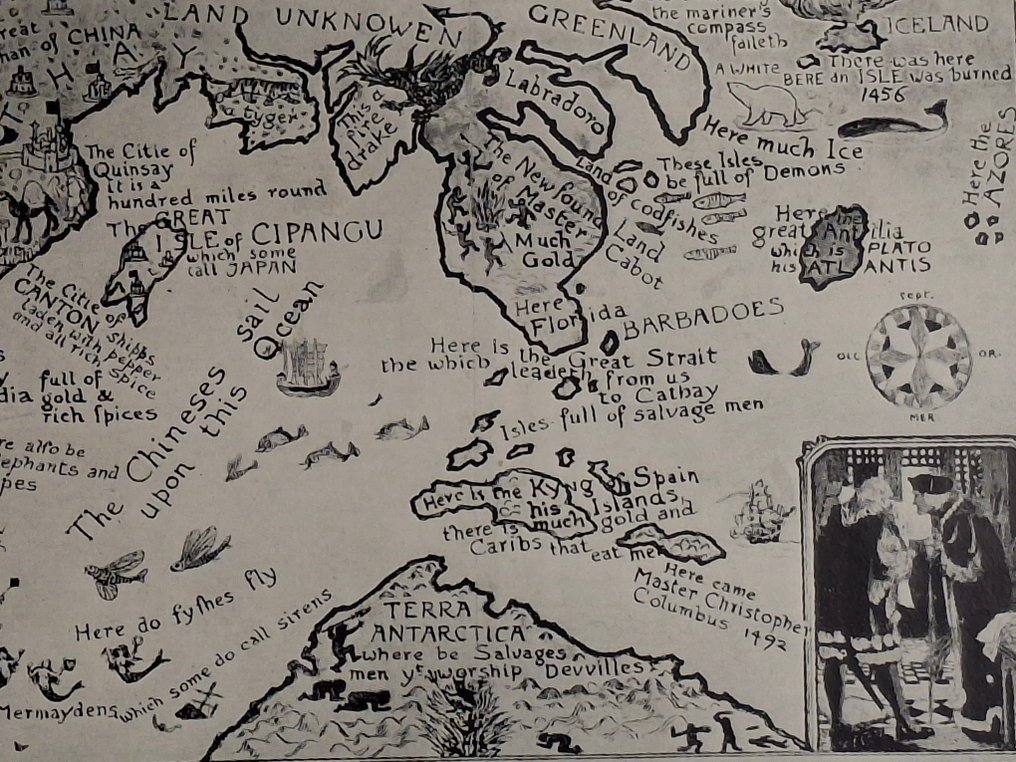 LAND UNKNOWEN
GREENLAND
the mariner's
compass
faileth
ICELAND
There was here
BERE an ISLE was burned
1456
A WHITE
reat
han of CHINA
T H A Y
a tyger
This a
fire
drake
Labradoro
Here much Ice
Here the
AZORES
The Citie of
Quinsay
It is a
hundred miles round
The GREAT
ISLE of CIPANGU
which some
call JAPAN
The New found
Land of codfishes
of Master
Cabot
Land
Much
Gold
These Isles
be full of Demons
Here
great Antilia
which is PLATO
his ATLANTIS
The Citie of
CANTON shipps
laden with pepper
and all rich spice
Here the
Florida
BARBADOES
sail
Ocean
The Chineses
upon this
Here is the Great Strait
the which leadeth from us
to Cathay
Isles full of salvage men
sept.
OCC
OR.
MER
full of
dia gold &
rich spices
re also be
lephants and
pes
Here Is the Kyng of Spain
his Islands,
there is much gold and
Caribs that eat men
Here came
Master Christopher
Columbus 1492
Here do fyshes fly
Mermaydens which some do call sirens
TERRA
ANTARCTICA
where be Salvages
men yt worship Devvilles